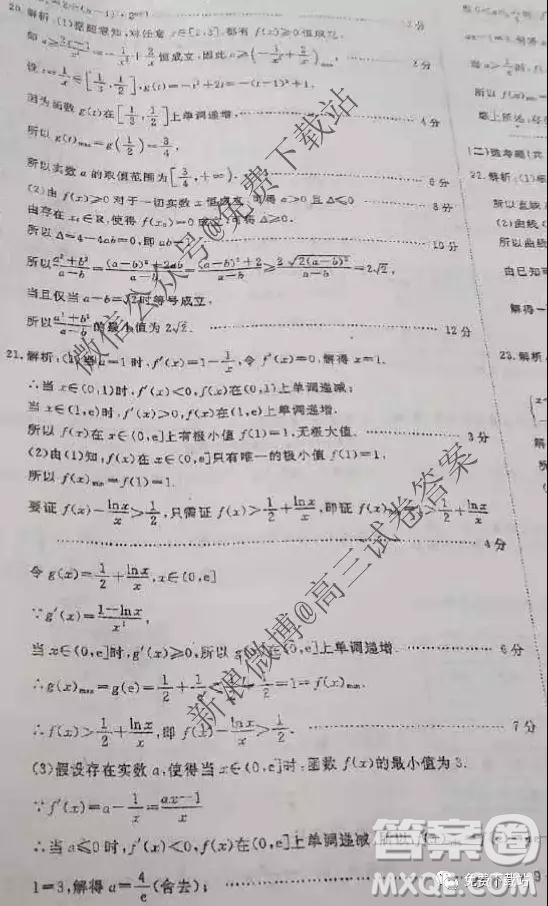 20. 解析:(1)
都有 f(x)≥0 恒成立.
设 t=1/x∈[1/3,1/2], g(t)=-t²+2t=-(t-1)²+1,
因为函数 g(t)在[1/3,1/2]上单调递增, 4分
所以 g(t)max=g(1/2)=3/4,
所以实数 a 的取值范围为[3/4,+∞). 6分
(2)由 f(x)≥0 对于一切实数 x 恒成立,可得 a>0 且 Δ≤0 8分
由存在 x₀∈R,使得 f(x₀)=0 成立,可得 Δ≥0.
所以 Δ=4-4ab=0,即 ab=1 10分
所以(a²+b²)/(a-b)=((a-b)²+2ab)/(a-b)=((a-b)²+2)/(a-b)≥2√(2(a-b)²)/(a-b)=2√2,
当且仅当 a-b=√2时等号成立,
所以(a²+b²)/(a-b)的最小值为2√2. 12分
21. 解析:(1)当a=1时,f′(x)=1-1/x,令 f′(x)=0,解得 x=1.
∴当 x∈(0,1)时,f′(x)<0,f(x)在(0,1)上单调递减;
当 x∈(1,e)时,f′(x)>0,f(x)在(1,e)上单调递增.
所以 f(x)在 x∈(0,e]上有极小值 f(1)=1,无极大值. 3分
(2)由(1)知,f(x)在(0,e]只有唯一的极小值 f(1)=1,
所以 f(x)min=f(1)=1.
要证 f(x)-lnx/x>1/2,只需证 f(x)>1/2+lnx/x,即证 f(x)min>1/2+lnx/x
4分
令 g(x)=1/2+lnx/x,x∈(0,e]
∵g′(x)=(1-lnx)/x²,
当 x∈(0,e]时,g′(x)≥0,所以 g(x)在(0,e]上单调递增. 6分
∴g(x)max=g(e)=1/2+1/e<1/2+1/2=1=f(x)min.
∴f(x)>1/2+lnx/x,即 f(x)-lnx/x>1/2. 7分
(3)假设存在实数 a,使得当 x∈(0,e]时,函数 f(x)的最小值为 3.
∵f′(x)=a-1/x=(ax-1)/x
∴当 a≤0 时,f′(x)<0,f(x)在(0,e]上单调递减,所以
1=3,解得 a=4/e(舍去);
22. 解析:(1)
所以直线
(2)曲线
所以曲线
由已知可
解得
23. 解析
微信公众号@免费下载站
新浪微博@高三试卷答案
答案圈
MXQE.COM
免费下载站